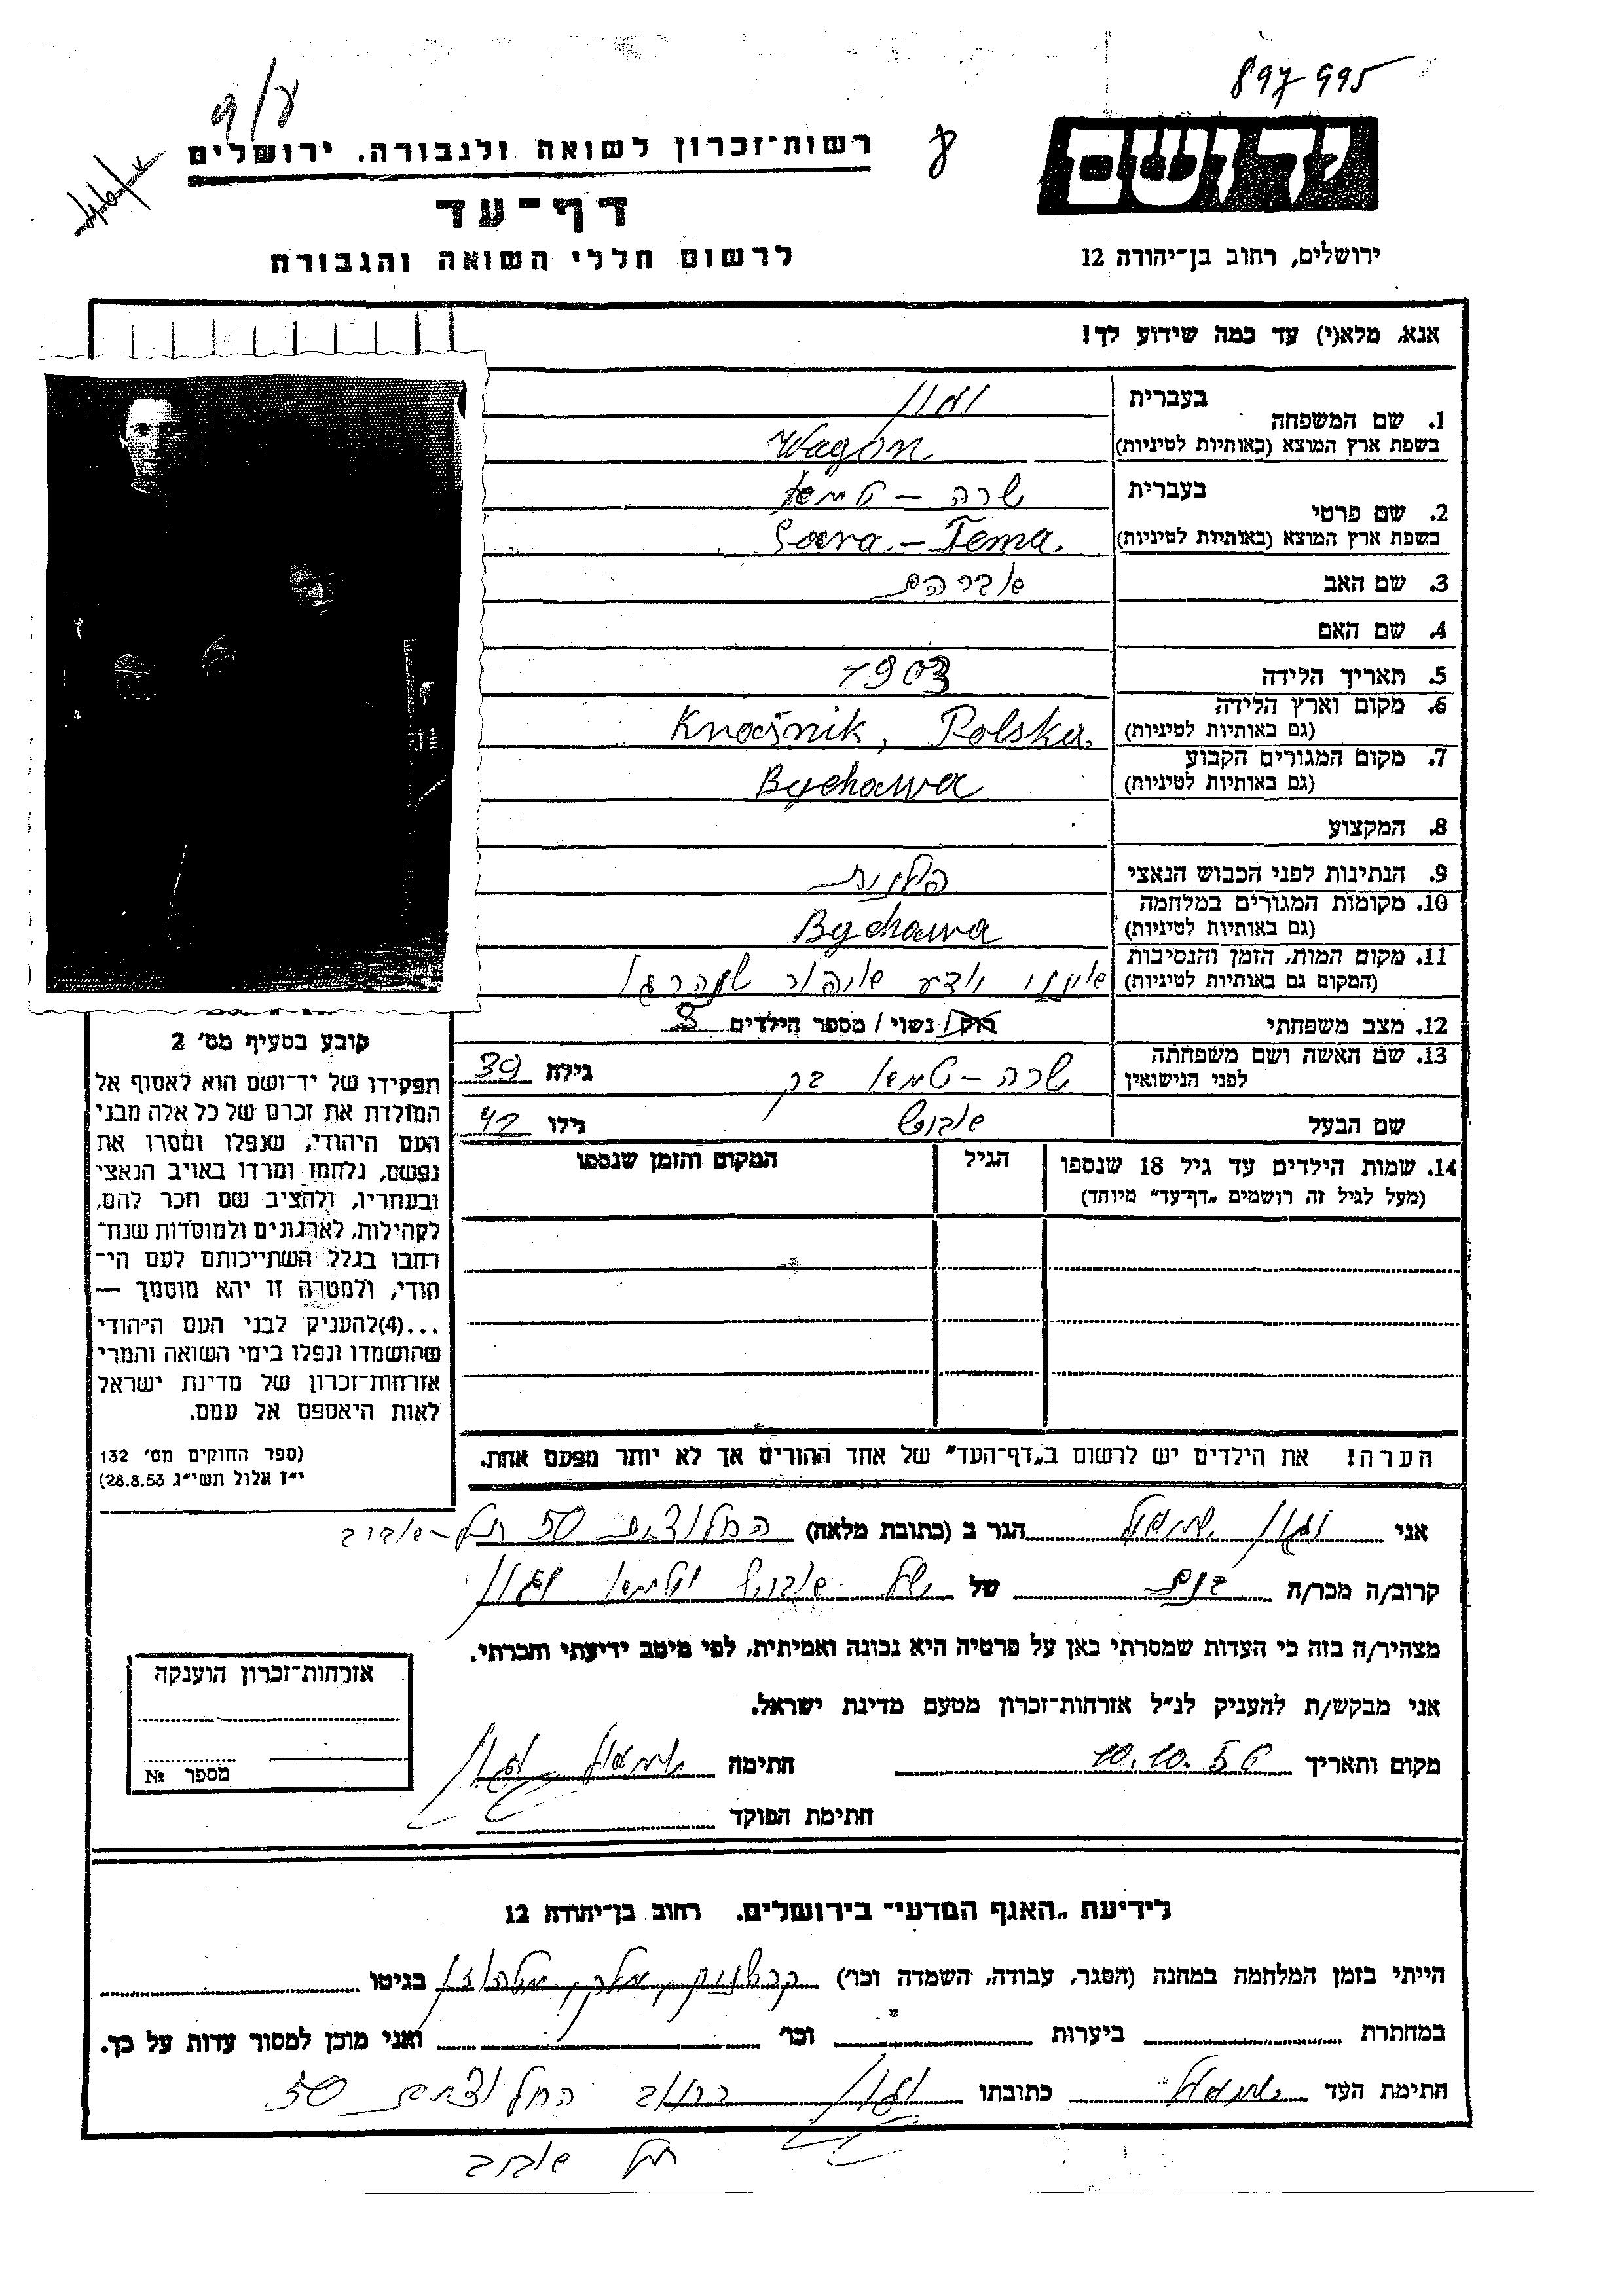 897995
רשות־זכרון לשואה ולגבורה, ירושלים
דף־עד
לרשום חללי השואה והגבורה
ידושם
ירושלים, רחוב בן־יהודה 12
אנא, מלא(י) עד כמה שידוע לך!
1. שם המשפחה בעברית וגון
בשפת ארץ המוצא (באותיות לטיניות) Wagon
2. שם פרטי בעברית שרה – טמא
בשפת ארץ המוצא (באותיות לטיניות) Sara – Tema.
3. שם האב אברהם
4. שם האם
5. תאריך הלידה 1903
6. מקום וארץ הלידה (גם באותיות לטיניות) Polska.
7. מקום המגורים הקבוע (גם באותיות לטיניות) Bychawa
8. המקצוע
9. הנתינות לפני הכבוש הנאצי פולנית
10. מקומות המגורים במלחמה (גם באותיות לטיניות) Bychawa
11. מקום המות, הזמן והנסיבות (המקום גם באותיות לטיניות) אינני יודע איפה
12. מצב משפחתי רוק / נשוי / מספר הילדים 3
13. שם האשה ושם משפחתה לפני הנישואין שרה – טמא גילה 39
שם הבעל גילו 42
14. שמות הילדים עד גיל 18 שנספו הגיל המקום והזמן שנספו
(מעל לגיל זה רושמים „דף־עד" מיוחד)
הערה! את הילדים יש לרשום ב„דף־העד" של אחד ההורים אך לא יותר מפעם אחת.
קובע בסעיף מס׳ 2
תפקידו של יד־ושם הוא לאסוף אל
המולדת את זכרם של כל אלה מבני
העם היהודי, שנפלו ומסרו את
נפשם, נלחמו ומרדו באויב הנאצי
ובעוזריו, ולהציב שם וזכר להם,
לקהילות, לארגונים ולמוסדות שנח־
רבו בגלל השתייכותם לעם הי־
הודי, ולמטרה זו יהא מוסמך —
...(4)להעניק לבני העם היהודי
שהושמדו ונפלו בימי השואה והמרי
אזרחות־זכרון של מדינת ישראל
לאות היאספם אל עמם.
(ספר החוקים מס׳ 132
י״ז אלול תשי״ג 28.8.53)
אני וגון שמואל הגר ב (כתובת מלאה) החלוצים 50 תל–אביב
קרוב/ה מכר/ה בנם של וטמא וגון
מצהיר/ה בזה כי העדות שמסרתי כאן על פרטיה היא נכונה ואמיתית, לפי מיטב ידיעתי והכרתי.
אני מבקש/ת להעניק לנ״ל אזרחות־זכרון מטעם מדינת ישראל.
מקום ותאריך 10.10.56 חתימה שמואל וגון
חתימת הפוקד
אזרחות־זכרון הוענקה
מספר №
לידיעת „האגף המדעי" בירושלים, רחוב בן־יהודה 12
הייתי בזמן המלחמה במחנה (הסגר, עבודה, השמדה וכו׳) בגיטו
במחתרת ביערות וכו׳ ואני מוכן למסור עדות על כך.
חתימת העד שמואל וגון כתובתו רחוב החלוצים 50
תל אביב